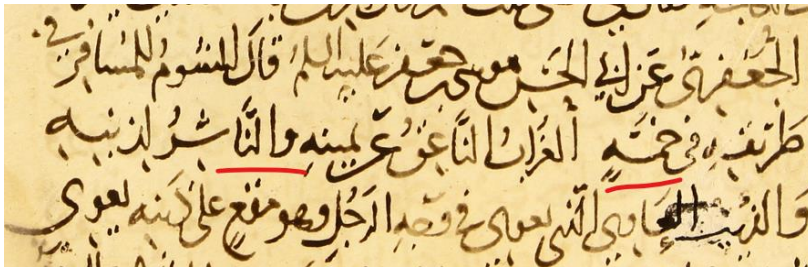 الجعفري عن أبي الحسن موسى بن جعفر عليه السلم قال الشوم للمسافر في
طريقه في خمسة الغراب الناعق عن يمينه والناشر لذنبه
والذئب العاوي الذي يعوي في وجه الرجل وهو مقع على ذنبه يعوي